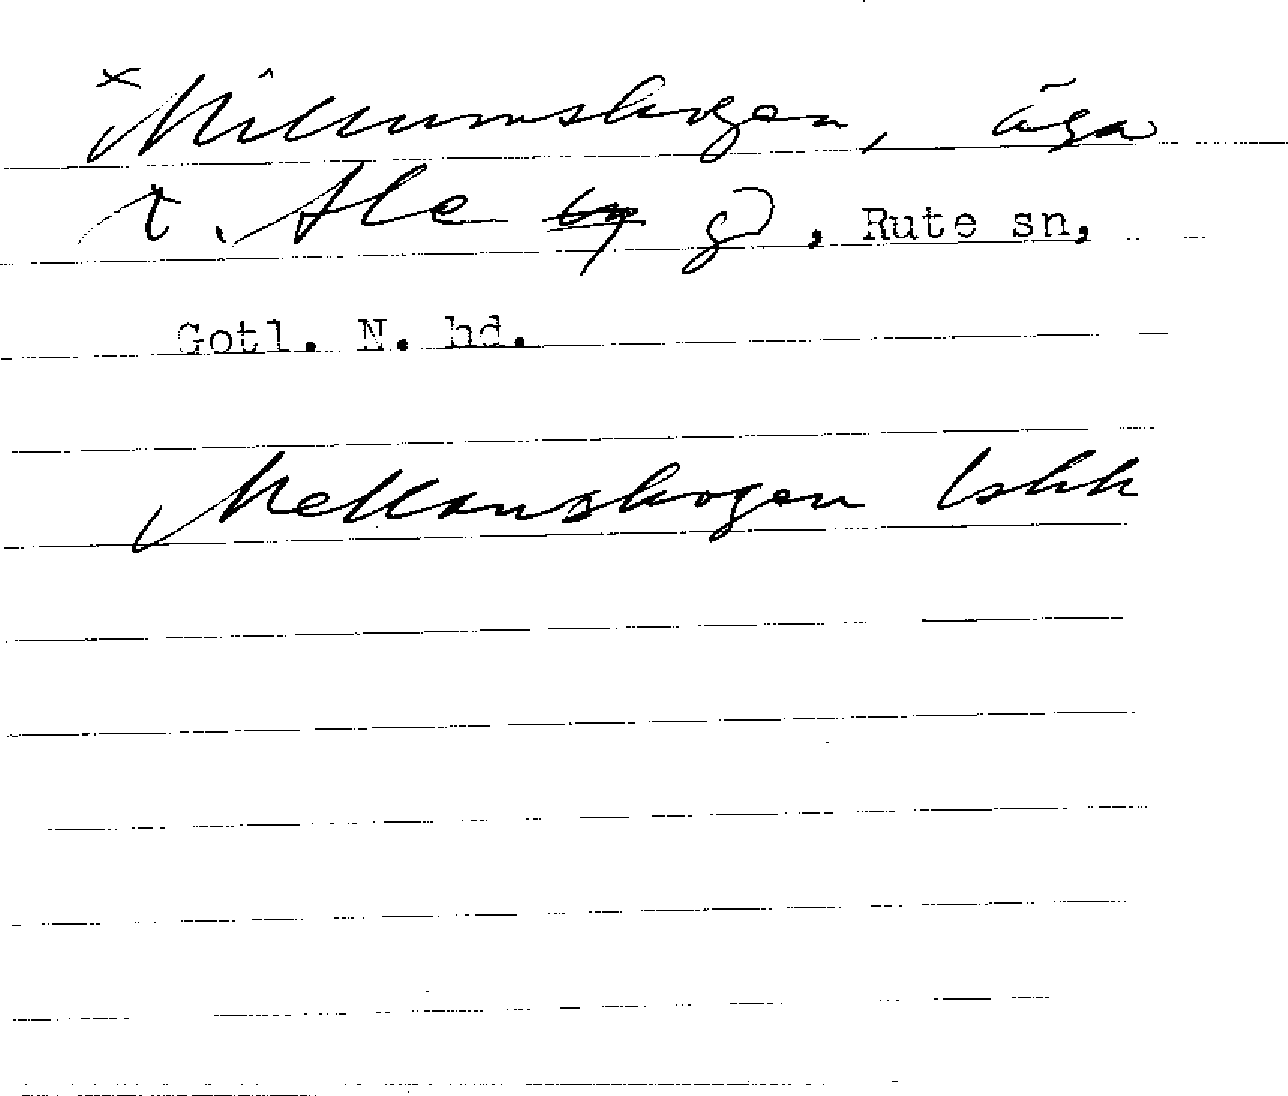 × Millumskogen, äga
t. Ale by gd, Rute sn,
Gotl. N. hd.
Mellanskogen lskk